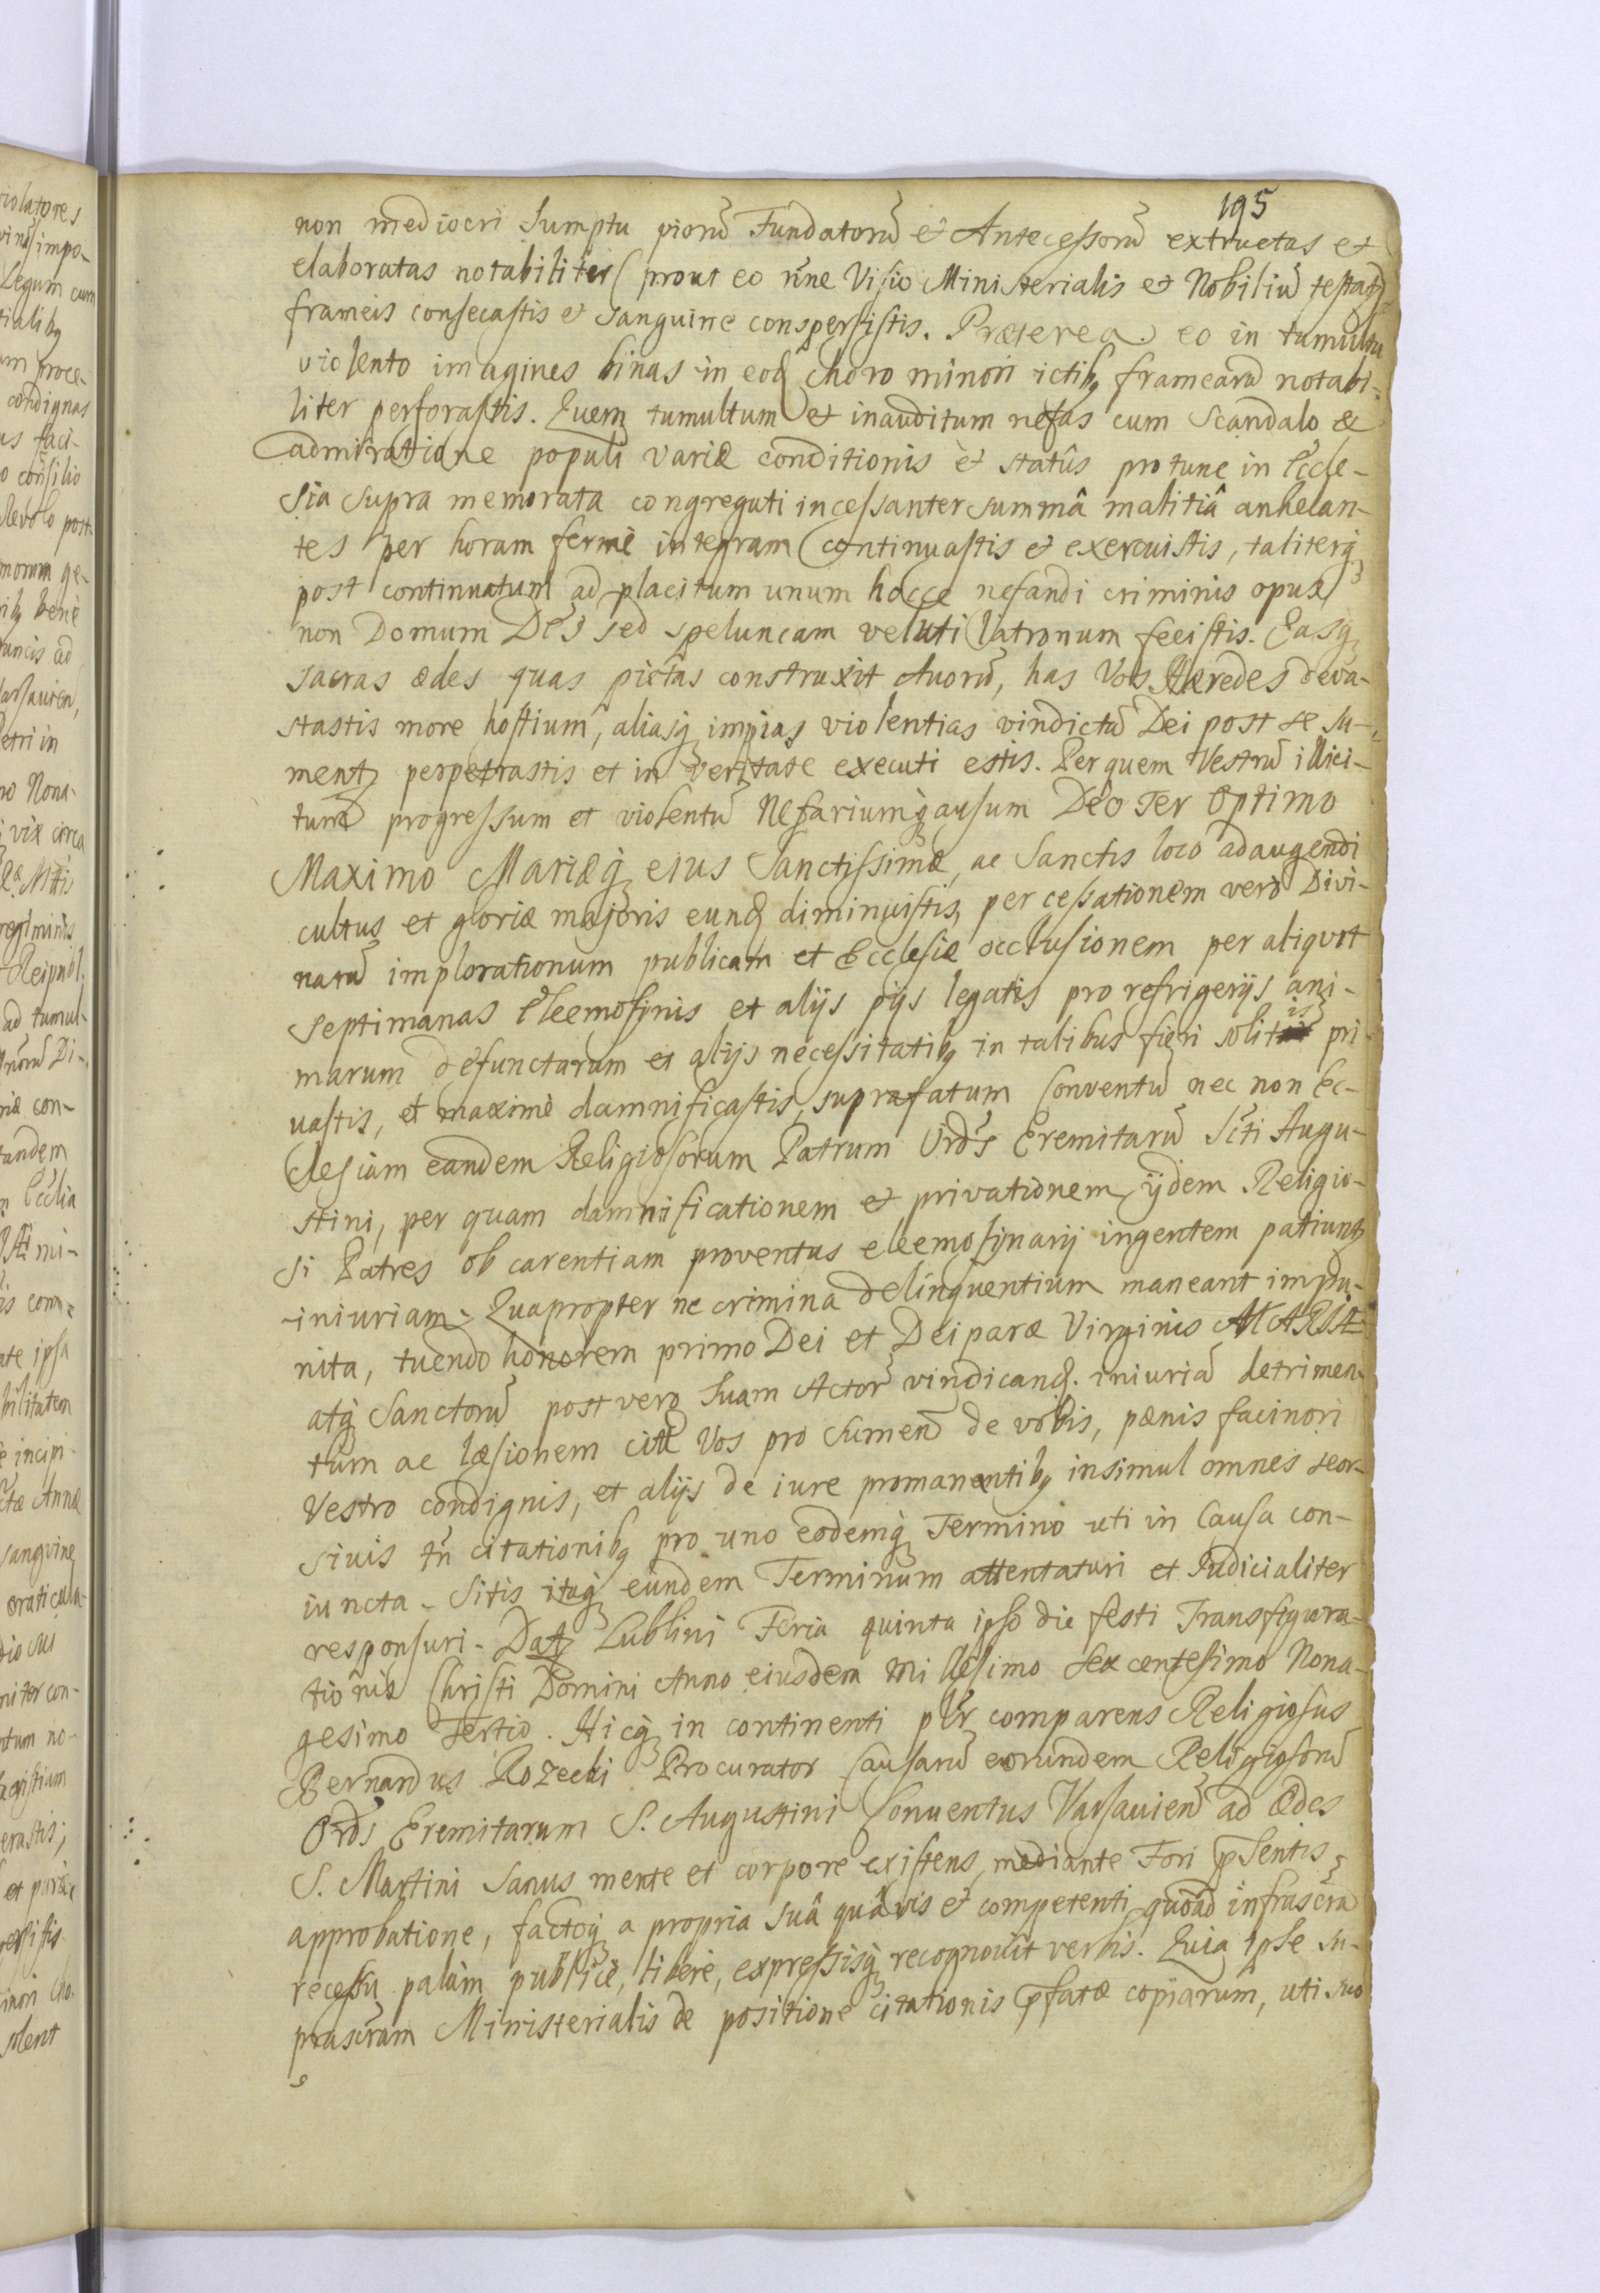 195
non mediocri sumptu piorũ Fundatorũ et Antecessorũ extructas et
elaboratas notabiliter (prout eo nñe Visio Ministerialis et Nobiliũ testatʒ)
frameis consecastis et sanguine conspersistis. Præterea eo in tumultu
violento imagines binas in eodʒ choro minori ictibʒ framearũ notabi-
liter perforastis. Quem tumultum et inauditum nefas cum scandalo et
admiratione populi variæ conditionis et statûs protunc in Eccle-
sia supra memorata congregati incessanter summâ malitiâ anhelan-
tes per horam fermè integram continuastis et exercuistis, taliterqʒ
post continuatum ad placitum unum hocce nefandi criminis opus
non Domum Dei sed speluncam veluti latronum fecistis. Easqʒ
sacras ædes quas pietas construxit Avorũ, has Vos Hæredes deva-
stastis more hostium, aliasqʒ impias violentias vindictã Dei post se su-
mentʒ perpetrastis et in veritate executi estis. Per quem Vestrũ illici-
tum progressum et violentũ Nefariumqʒ ausum Deo Ter Optimo
Maximo Mariæqʒ eius Sanctissimæ, ac Sanctis loco adaugendi
cultus et gloriæ majoris eundʒ diminuistis, per cessationem verò Divi-
narũ implorationum publicam et Ecclesiæ occlusionem per aliquot
septimanas Eleemosynis et alijs pijs legatis pro refrigerijs ani-
marum defunctarum et alijs necessitatibʒ in talibus fieri solitis pri-
vastis, et maximè damnificastis, suprafatum Conventũ nec non Ec-
clesiam eandem Religiosorum Patrum Ordĩs Eremitarũ Scti Augu-
stini, per quam damnificationem et privationem ijdem Religio-
si Patres ob carentiam proventus eleemosynarij ingentem patiuntʒ
iniuriam. Quapropter ne crimina delinquentium maneant impu-
nita, tuendo honorem primo Dei et Deiparæ Virginis MARIÆ
atqʒ Sanctorũ post vero suam Actor vindicandʒ. iniuriã detrimen-
tum ac læsionem citat Vos pro sumend̃ de vobis, pænis facinori
Vestro condignis, et alijs de iure promanentibʒ insimul omnes seor-
sivis tñ citationibʒ pro uno eodemqʒ Termino uti in Causa con-
iuncta. Sitis itaqʒ eundem Terminum attentaturi et Iudicialiter
responsuri. Datʒ Lublini Feria quinta ipso die festi Transfigura-
tionis Christi Domini Anno eiusdem Millesimo Sexcentesimo Nona-
gesimo Tertio. Hicqʒ in continenti plr̃ comparens Religiosus
Bernardus Rozecki Procurator Causarũ eorundem Religiosorũ
Ordĩs Eremitarum S. Augustini Conventus Varsavien̄ ad Ædes
S. Martini Sanus mente et corpore existens, mediante Fori p̃sentis
approbatione, factoqʒ a propria suâ quâvis et competenti, quoad infrascr̃a
recessu palàm, publicè, liberè, expressisqʒ recognovit verbis. Quia ipse su-
prascr̃am Ministerialis de positione citationis p̃fatæ copiarum, uti suo